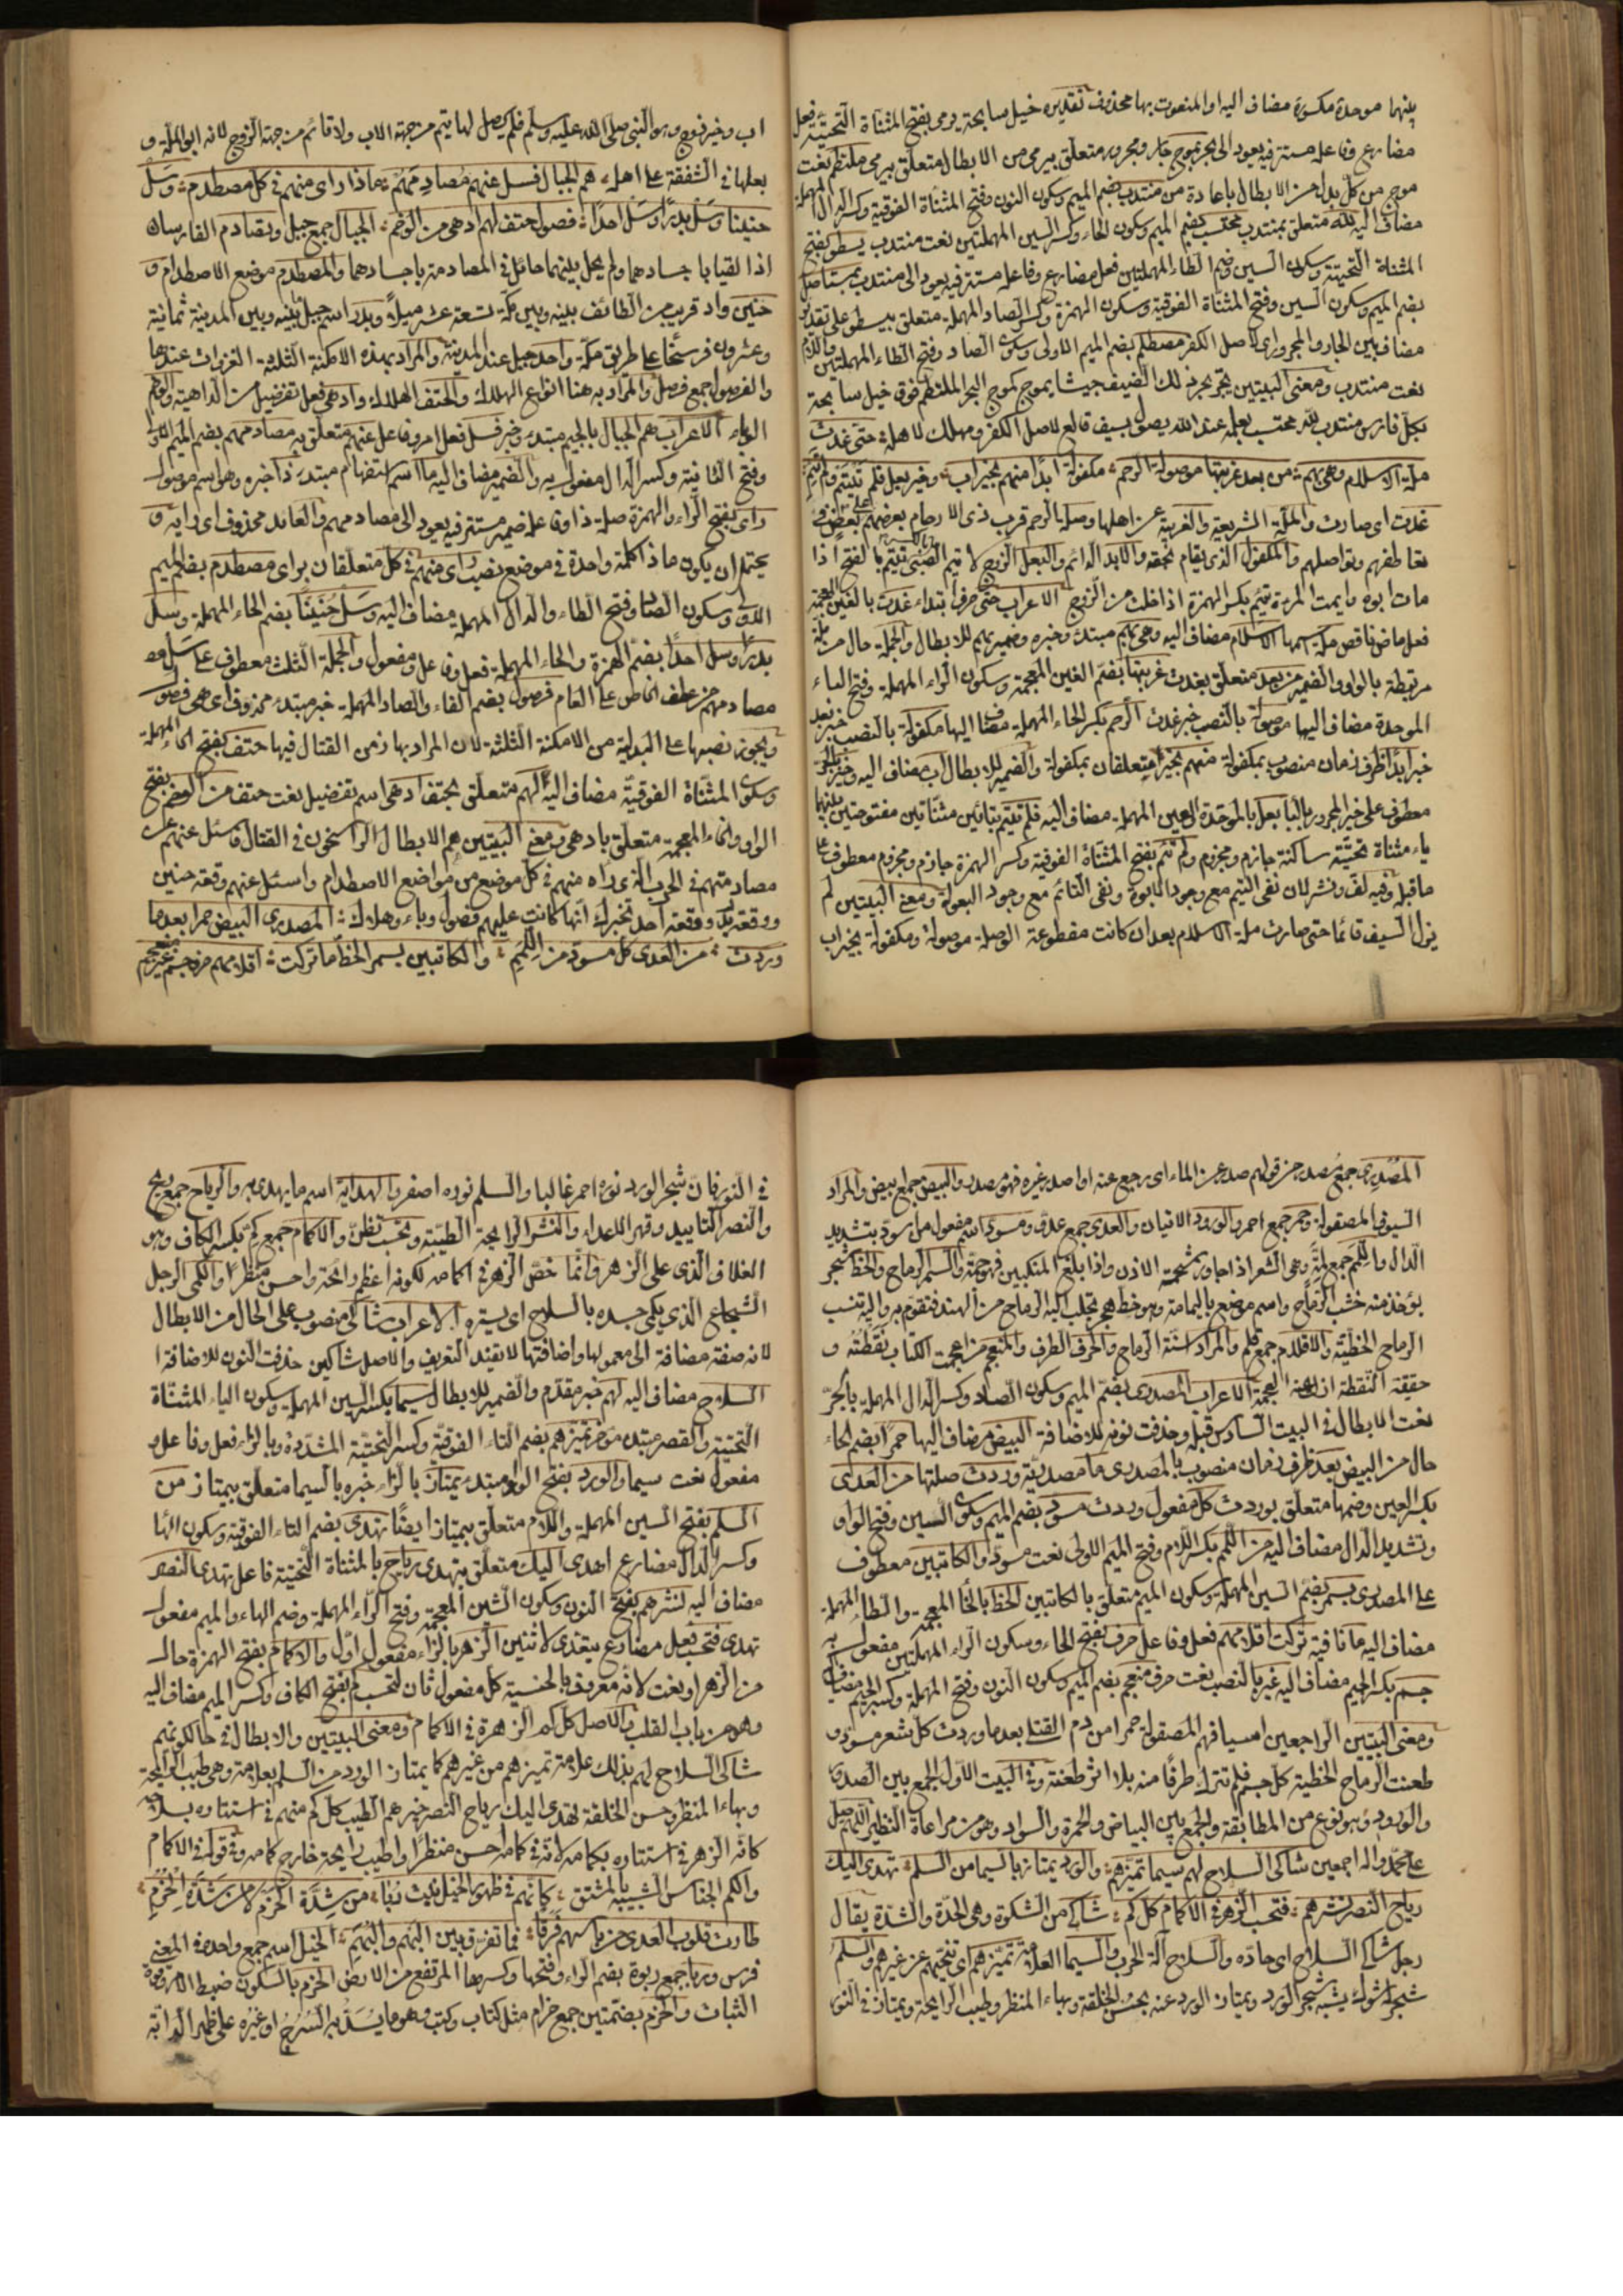 بينهما موحدة مكسورة مضاف اليه او المنعوت بها محذوف تقديره خيل سابحة يرمى بفتح المثناة التحتية فعل
مضارع وفاعله مستتر فيه يعود الى بحر بموج جار ومجرور متعلق بيرمى من الابطال متعلق بيرمى ملتطم نعت
موج من كل بدل من الابطال باعادة من منتدب بضم الميم وسكون النون وفتح المثناة الفوقية وكسر الدال المهملة
مضاف اليه لله متعلق بمنتدب محتسب بضم الميم وسكون الحاء وكسر السين المهملتين نعت منتدب يسطو بفتح
المثناة التحتية وسكون السين وضم الطاء المهملتين فعل مضارع وفاعله مستتر فيه يعود الى منتدب بمستاصل
بضم الميم وسكون السين وفتح المثناة الفوقية وسكون الهمزة وكسر الصاد المهملة متعلق بيسطو على تقدير
مضاف بين الجار والمجرور اى لاصل الكفر مصطلم بضم الميم الاولى وسكون الصاد وفتح الطاء المهملتين واللام
نعت منتدب ومعنى البيتين يجر بحر ذلك الضيف جيشا يموج كموج البحر الملتطم فوق خيل سابحة
بكل فارس منتدب لله محتسب بعلمه عند الله يصول بسيف قالع لاصل الكفر ومهلك لاهله حتى غدت
ملة الاسلام وهى بهم من بعد غربتها موصولة الرحم مكفولة ابدا منهم بخير اب وخير بعل فلم تيتم ولم تئم
غدت اى صارت والملة الشريعة والغربة عن اهلها وصلة الرحم قرب ذى الارحام بعضهم على بعض فى
تعاطفهم وتواصلهم والمكفول الذى يقام بحقه والابد الدائم والبعل الزوج لا يتم الصبى بالكسر تيتم بالفتح اذا
مات ابوه وايمت المرءة تئيم بكسر الهمزة اذا خلت من الزوج الاعراب حتى حرف ابتداء غدت بالغين المعجمة
فعل ماض ناقص ملة اسمها الاسلام مضاف اليه وهى بهم مبتدء وخبره وضمير بهم للابطال والجملة حال من ملة
مرتبطة بالواو والضمير من بعد متعلق بغدت غربتها بضم الغين المعجمة وسكون الراء المهملة وفتح الباء
الموحدة مضاف اليها موصولة بالنصب خبر غدت الرحم بكسر الحاء المهملة مضاف اليها مكفولة بالنصب خبر بعد
خبر ابدا ظرف زمان منصوب بمكفولة منهم بخير متعلقان بمكفولة والضمير للابطال اب مضاف اليه وخير بالجر
معطوف على خير المجرور بالباء بعل بالموحدة والعين المهملة مضاف اليه فلم تيتم بتائين مثناتين مفتوحتين بينهما
ياء مثناة تحتية ساكنة جازم ومجزوم ولم تئم بفتح المثناة الفوقية وكسر الهمزة جازم ومجزوم معطوف على
ما قبله وفيه لف ونشر لان نفى اليتم مع وجود الابوة ونفى التائم مع وجود البعولة ومعنى البيتين لم
يزل السيف قائما حتى صارت ملة الاسلام بعد ان كانت مقطوعة الوصلة موصولة ومكفولة بخير اب
اب وخير زوج وهو النبى صلى الله عليه وسلم فلم يحصل لها يتم من جهة الاب ولا قائم من جهة الزوج لانه ابو الملة و
بعلها فى الشفقة على اهله هم الجبال فسل عنهم مصادمهم ماذا راى منهم فى كل مصطدم وسل
حنينا وسل بدرا وسل احدا فصول حتف لهم ادهى من الوخم الجبال جمع جبل وتصادم الفارسان
اذا لقيا باجسادهما ولم يحل بينهما حائل فى المصادمة باجسادهما والمصطدم موضع الاصطدام و
حنين واد قريب من الطائف بينه وبين مكة تسعة عشر ميلا وبدر اسم جبل بينه وبين المدينة ثمانية
وعشرون فرسخا على طريق مكة واحد جبل عند المدينة والمراد بهذه الامكنة الثلثة الغزوات عندها
والفصول جمع فصل والمراد به هنا انواع الهلاك والحتف الهلاك وادهى فعل تفضيل من الداهية والوخم
الوباء الاعراب هم الجبال بالجيم مبتدء وخبر فسل فعل امر وفاعل عنهم متعلق به مصادمهم بضم الميم الاولى
وفتح الثانية وكسر الدال مفعول به والضمير مضاف اليه ما اسم استفهام مبتدء ذا خبره وهو اسم موصول
راى بفتح الراء والهمزة صلة ذا وفاعله ضمير مستتر فيه يعود الى مصادمهم والعائد محذوف اى رايه و
يحتمل ان يكون ماذا كلمة واحدة فى موضع نصب براى منهم فى كل متعلقان براى مصطدم بضم الميم
الاولى وسكون الصاد وفتح الطاء والدال المهملة مضاف اليه وسل حنينا بضم الحاء المهملة وسل
بدرا وسل احدا بضم الهمزة والحاء المهملة فعل وفاعل ومفعول والجملة الثلث معطوف على سل
مصادمهم من عطف الخاص على العام فصول بضم الفاء والصاد المهملة خبر مبتدء محذوف اى هى فصول
ويجوز نصبها على البدلية من الامكنة الثلثة لان المراد بها زمن القتال فيها حتف بفتح الحاء المهملة
وسكون المثناة الفوقية مضاف اليه لهم متعلق بحتف ادهى اسم تفضيل نعت حتف من الوخم بفتح
الواو والخاء المعجمة متعلق بادهى ومعنى البيتين هم الابطال الراسخون فى القتال فاسئل عنهم
مصادمتهم فى الحرب الذى راه منهم فى كل موضع من مواضع الاصطدام واسئل عنهم وقعة حنين
ووقعة بدر ووقعة احد تخبرك انها كانت عليهم فصول وباء وهلاك المصدرى البيض حمرا بعد ما
وردت من العدى كل مسود من اللمم والكاتبين بسمر الخط ما تركت اقلامهم حرف جسم غير منعجم
المصدرى جمع مصدر من قولهم صدر عن الماء اى رجع عنه واصدر غيره فهو مصدر والبيض جمع ابيض والمراد
السيوف المصقولة وحمر جمع احمر والورود الاتيان والعدى جمع عدو ومسود اسم مفعول من اسود بتشديد
الدال واللمم جمع لمة وهى الشعر اذا جاوز شحمة الاذن واذا بلغ المنكبين فهو جمة والسمر الرماح والخط شجر
يؤخذ منه خشب الرماح واسم موضع باليمامة وهو خط هجر تجلب اليه الرماح من الهند فتقوم به واليه تنسب
الرماح الخطية والاقلام جمع قلم والمراد اسنة الرماح والحرف الطرف والمنعجم من اعجمت الكتاب نقطته و
حقيقة النقطة ازالة العجمة الاعراب المصدرى بضم الميم وسكون الصاد وكسر الدال المهملة بالجر
نعت الابطال فى البيت السادس قبله وحذفت نونه للاضافة البيض مضاف اليها حمرا بضم الحاء
حال من البيض بعد ظرف زمان منصوب بالمصدرى ما مصدرية وردت صلتها من العدى
بكسر العين وضمها متعلق بوردت كل مفعول وردت مسود بضم الميم وسكون السين وفتح الواو
وتشديد الدال مضاف اليه من اللمم بكسر اللام وفتح الميم الاولى نعت مسود والكاتبين معطوف
على المصدرى بسمر بضم السين المهملة وسكون الميم متعلق بالكاتبين الخط بالخاء المعجمة والطاء المهملة
مضاف اليه ما نافية تركت اقلامهم فعل وفاعل حرف بفتح الحاء وسكون الراء المهملتين مفعول به
جسم بكسر الجيم مضاف اليه غير بالنصب نعت حرف منعجم بضم الميم وسكون النون وفتح المهملة وكسر الجيم مضاف اليه
ومعنى البيتين الراجعين اسيافهم المصقولة حمرا من دم القتلى بعد ما وردت كل شعر مسود و
طعنت الرماح الخطية كل جسم فلم تترك طرفا منه بلا اثر طعنة وفى البيت الاول الجمع بين الصدور
والورود وهو نوع من المطابقة والجمع بين البياض والحمرة والسواد وهو من مراعاة النظير اللهم صل
على محمد واله اجمعين شاكى السلاح لهم سيما تميزهم والورد يمتاز بالسيما من السلم تهدى اليك
رياح النصر نشرهم فتحسب الزهر فى الاكمام كل كم شاكى من الشكوة وهى الحدة والشدة يقال
رجل شاكى السلاح اى حاده والسلاح آلة الحرب والسيما العلامة تميزهم اى تنعجهم عن غيرهم والسلم
شجر له شوك يشبه شجر الورد ويمتاز الورد عنه بحسن الخلقة وبهاء المنظر وطيب الرايحة ويمتاز فى النور
فى النور فان شجر الورد نوره احمر غالبا والسلم نوره اصفر والهداية اسم ما يهدى به والرياح جمع ريح
والنصر التاييد وقهر الاعداء والنشر الرايحة الطيبة وتحسب تظن والاكمام جمع كم بكسر الكاف وهو
الغلاف الذى على الزهر وانما خص الزهر فى اكمامه لكونه اعظم رائحة واحسن منظرا والكمى الرجل
الشجاع الذى يكمى جسده بالسلاح اى يستره الاعراب شاكى منصوب على الحال من الابطال
لانه صفة مضافة الى معمولها واضافتها لا تفيد التعريف والاصل شاكين حذفت النون للاضافة
السلاح مضاف اليه لهم خبر مقدم والضمير للابطال سيما بكسر السين المهملة وسكون الياء المثناة
التحتية والقصر مبتدء مؤخر تميزهم بضم التاء الفوقية وكسر التحتية المشددة وبالزاء فعل وفاعل و
مفعول نعت سيما والورد بفتح الواو مبتدء يمتاز بالزاء خبره بالسيما متعلق بيمتاز من
السلم بفتح السين المهملة واللام متعلق بيمتاز ايضا تهدى بضم التاء الفوقية وسكون الهاء
وكسر الدال مضارع اهدى اليك متعلق بتهدى رياح بالمثناة التحتية فاعل تهدى النصر
مضاف اليه نشرهم بفتح النون وسكون الشين المعجمة وفتح الراء المهملة وضم الهاء والميم مفعول
تهدى فتحسب فعل مضارع يتعدى لاثنين الزهر بالزاء مفعول اول والاكمام بفتح الهمزة حال
من الزهر او نعت لانه معرف بالجنسية كل مفعول ثان لتحسب كم بفتح الكاف وكسر الميم مضاف اليه
وهو من باب القلب والاصل كل كم الزهرة فى الاكمام ومعنى البيتين والابطال فى حال كونهم
شاكى السلاح لهم بذلك علامة تميزهم من غيرهم كما يمتاز الورد من السلم بعلامته وهى طيب الرايحة
وبهاء المنظر وحسن الخلقة تهدى اليك رياح النصر خبرهم الطيب كل كم منهم فى استتاره بسلاحه
كانه الزهر فى استتاره بكمامه لانه فى كمامه احسن منظرا واطيب رايحة خارج كمامه وفى قوله فى الاكمام
والكم الجناس الشبيه بالمشتق كانهم فى ظهور الخيل نبت ربا من شدة الحزم لا من شدة الحزم
طارت قلوب العدى من باسهم فرقا فما تفرق بين البهم والبهم الخيل اسم جمع واحده فى المعنى
فرس وربا جمع ربوة بضم الراء وفتحها وكسرها المرتفع من الارض الحزم بالسكون ضبط الامر وقوة
الثبات والحزم بضمتين جمع حزام مثل كتاب وكتب وهو ما يشد به السرج او غيره على ظهر الدابة